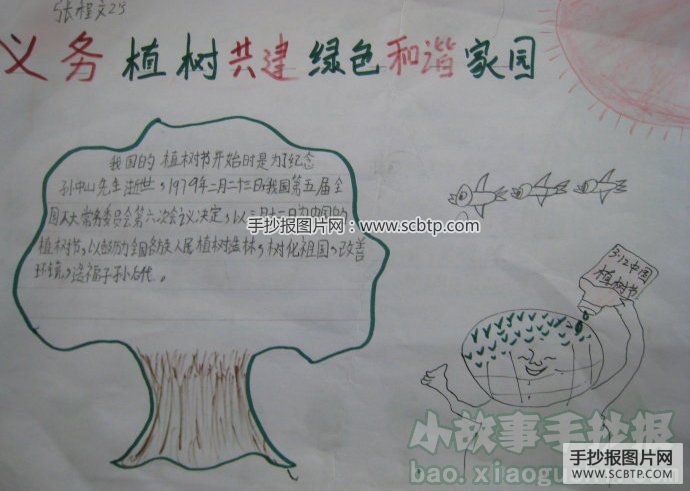 张程文25
义务植树共建绿色和谐家园
我国的植树节开始时是为了纪念
孙中山先生逝世。1979年二月二十三日我国第五届全
国人大常务委员会第六次会议决定，以三月十二日为中国的
植树节，以鼓励全国各族人民植树造林，树化祖国，改善
环境，造福子孙后代。
手抄报图片网：www.scbtp.com
3.12中国
植树节
小故事手抄报
bao.xiaogu
手抄报图片网
WWW.SCBTP.COM